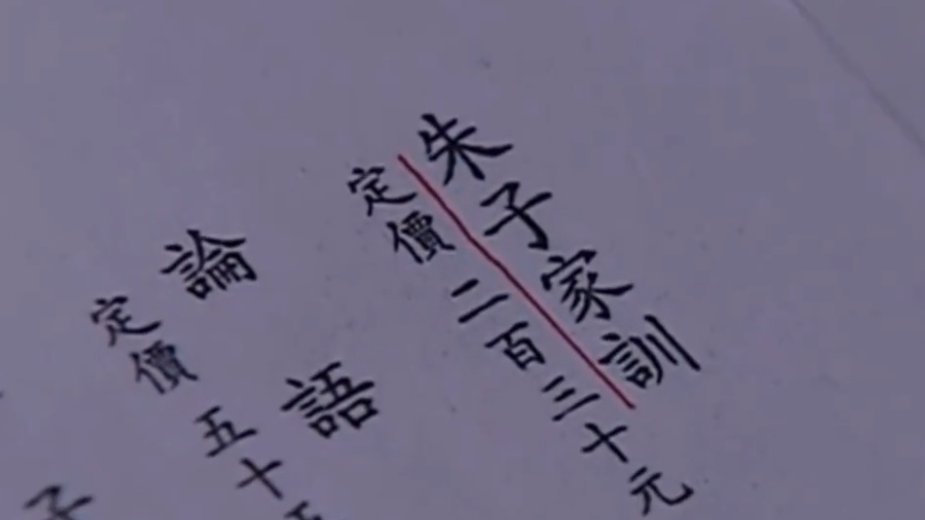 朱子家訓
定價二百三十元
論語
定價五十五
子